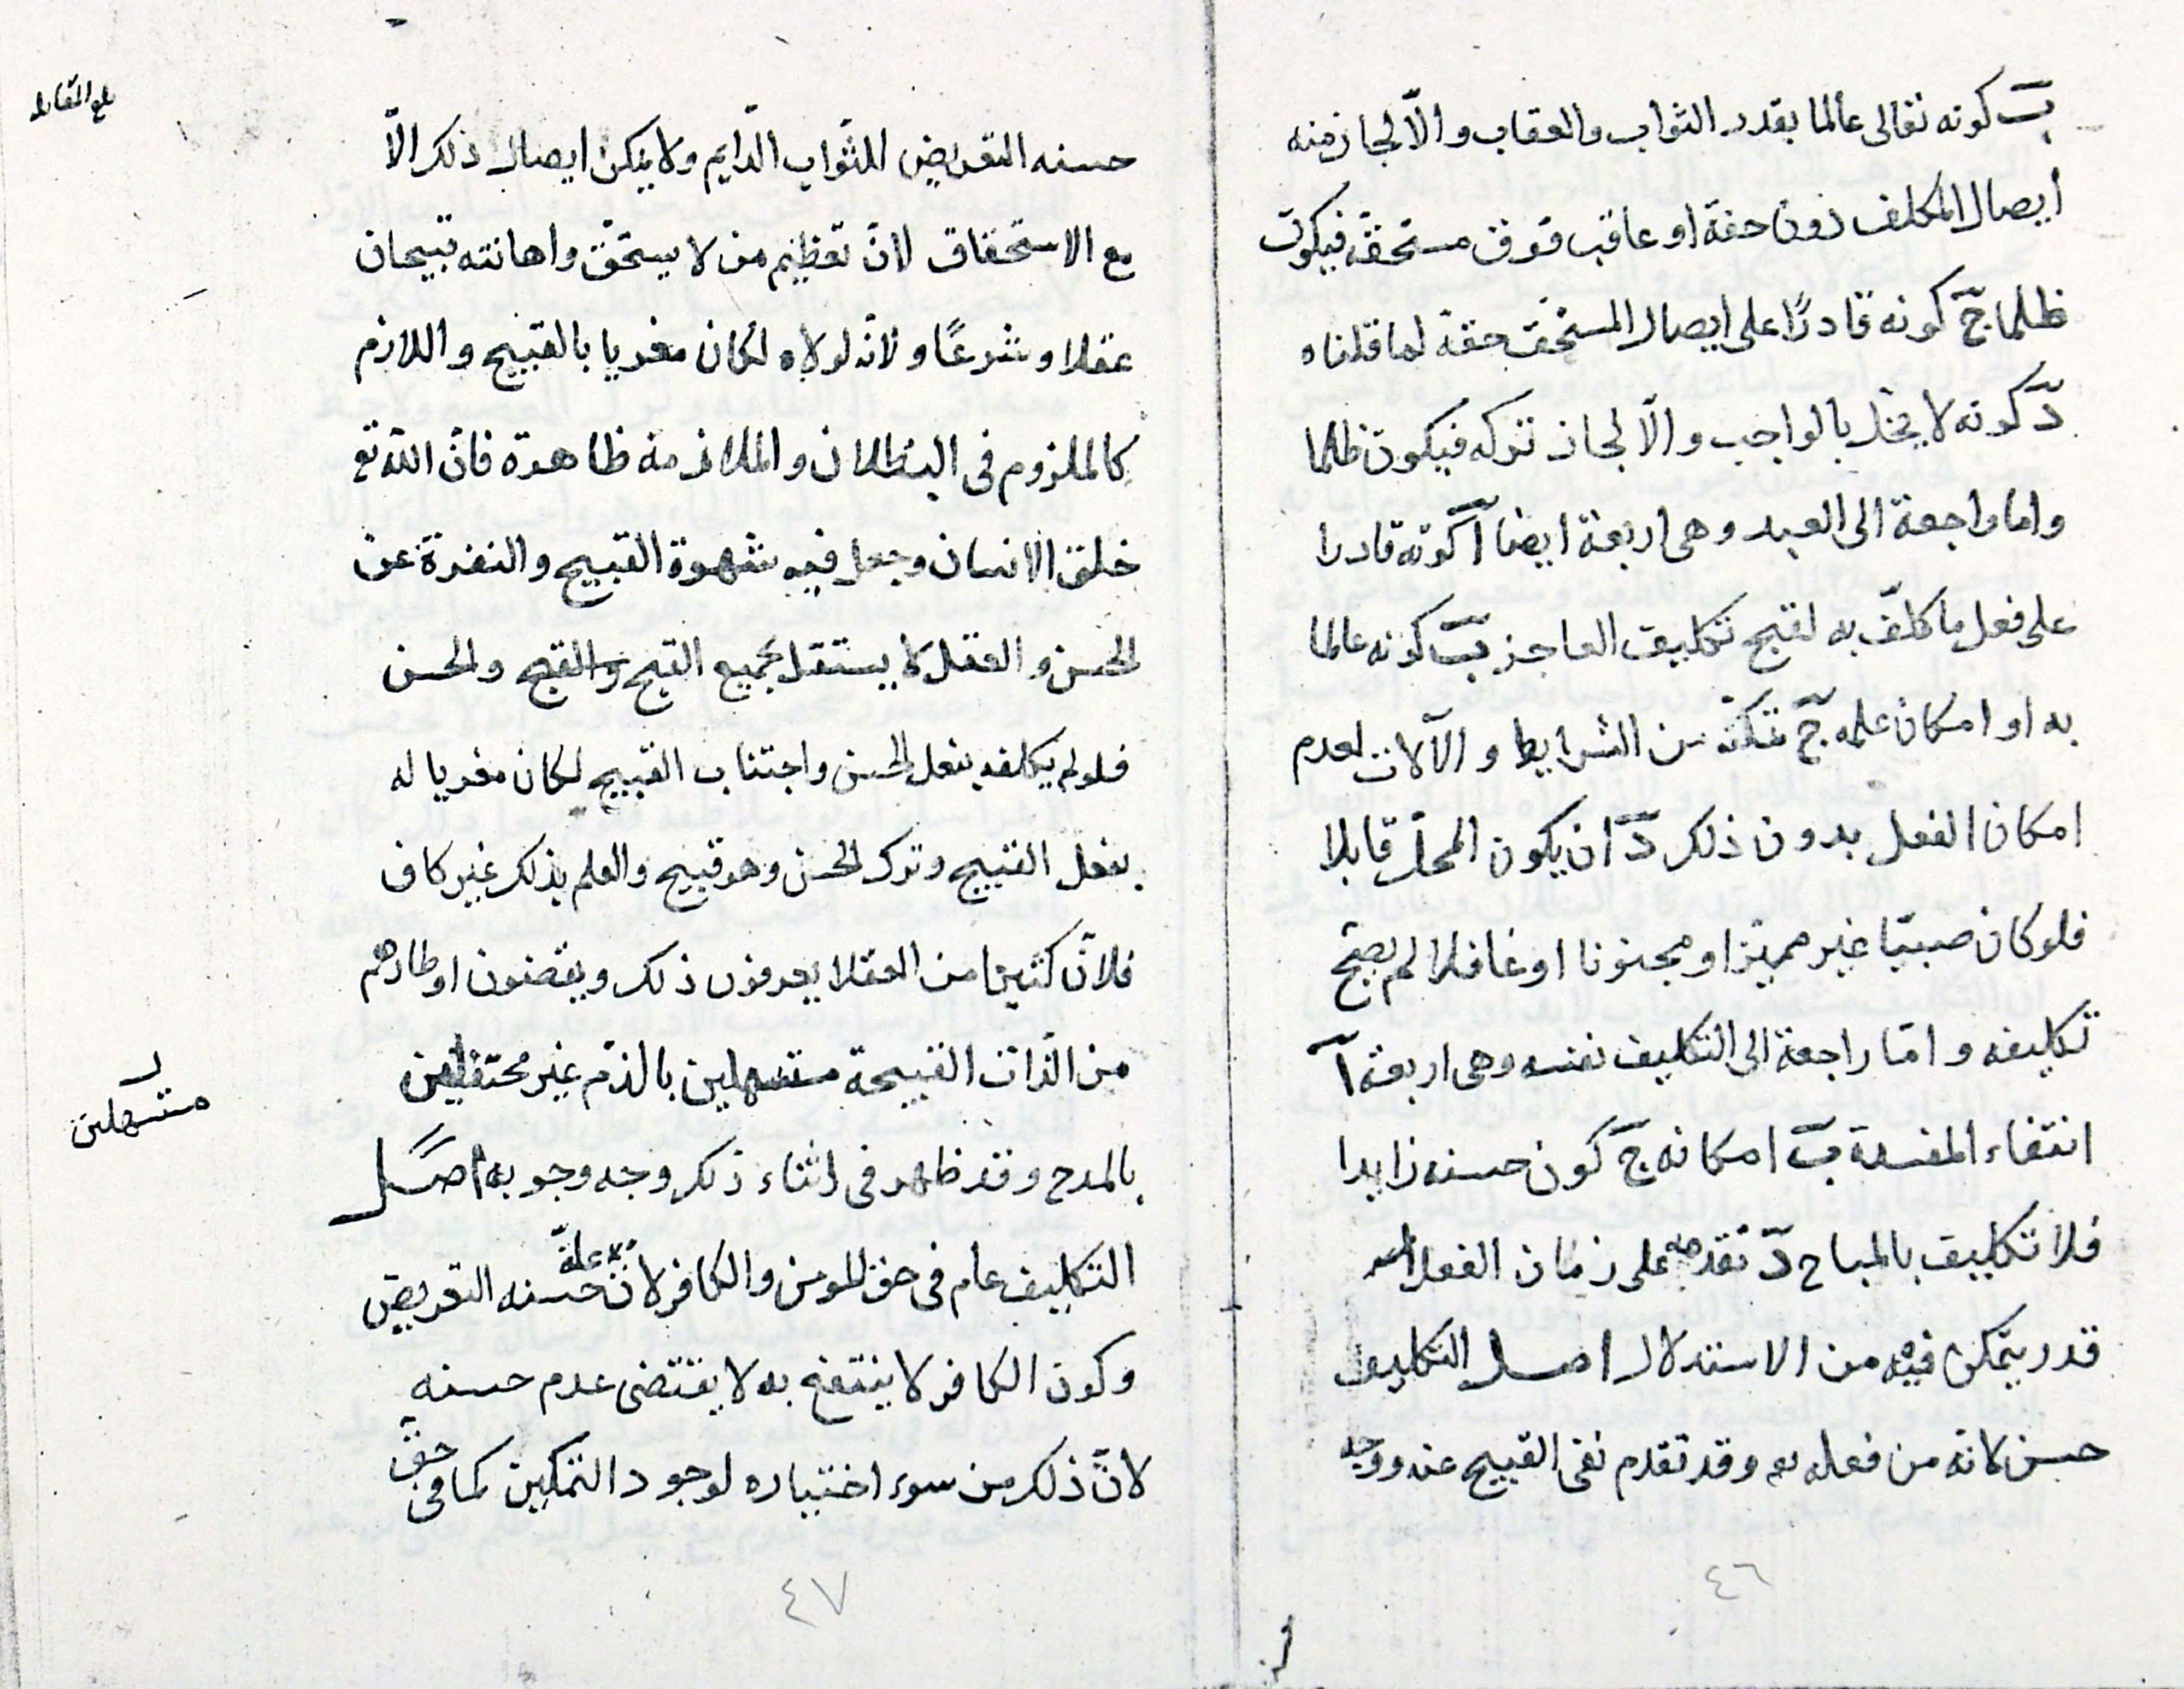 ب كونه تعالى عالما بقدر الثواب والعقاب والّا لجاز منه
ايصال المكلف دون حقه او عاقب فوق مستحقه فيكون
ظلما ج كونه قادرًا على ايصال المستحق حقه لما قلناه
د كونه لا يخل بالواجب والّا لجاز تركه فيكون ظلما
واما راجعة الى العبد وهى اربعة ايضا آ كونه قادرا
على فعل ما كلّف به لقبح تكليف العاجز ب كونه عالما
به او امكان علمه ج تمكنه من الشرايط والآلات لعدم
امكان الفعل بدون ذلك د ان يكون المحل قابلا
فلو كان صبيّا غير مميّز او مجنونا او غافلا لم يصح
تكليفه وامّا راجعة الى التكليف نفسه وهى اربعة آ
انتفاء المفسدة ب امكانه ج كون حسنه زايدا
فلا تكليف بالمباح د تقدمه على زمان الفعل
قدر يتمكن فيه من الاستدلال اصل التكليف
حسن لانه من فعله تع وقد تقدم نفى القبيح عنه ووجه
٤٦
بلغ المقابلة
حسنه التعريض للثّواب الدّايم ولا يمكن ايصال ذلك الّا
مع الاستحقاق لانّ تعظيم من لا يستحق واهانته قبيحان
عقلا وشرعًا ولانّه لولاه لكان مغريا بالقبيح واللازم
كالملزوم فى البطلان والملازمة ظاهرة فانّ اللّه تع
خلق الانسان وجعل فيه شهوة القبيح والنفرة عن
الحسن والعقل لا يستقل بجميع القبيح والقبح والحسن
فلو لم يكلفه بفعل الحسن واجتناب القبيح لكان مغريا له
بفعل القبيح وترك الحسن وهو قبيح والعلم بذلك غير كاف
فلانّ كثيرا من العقلا يعرفون ذلك ويقضون اوطارهم
من اللّذات القبيحة مستسهلين بالذم غير محتفلين
مستسهلين
بالمدح وقد ظهر فى اثناء ذكر وجه وجوبه اصل
التكليف عام فى حق المومن والكافر لانّ علة حسنه التعريض
وكون الكافر لا ينتفع به لا يقتضى عدم حسنه
لانّ ذلك من سوء اختياره لوجود التمكين كما فى حق
٤٧